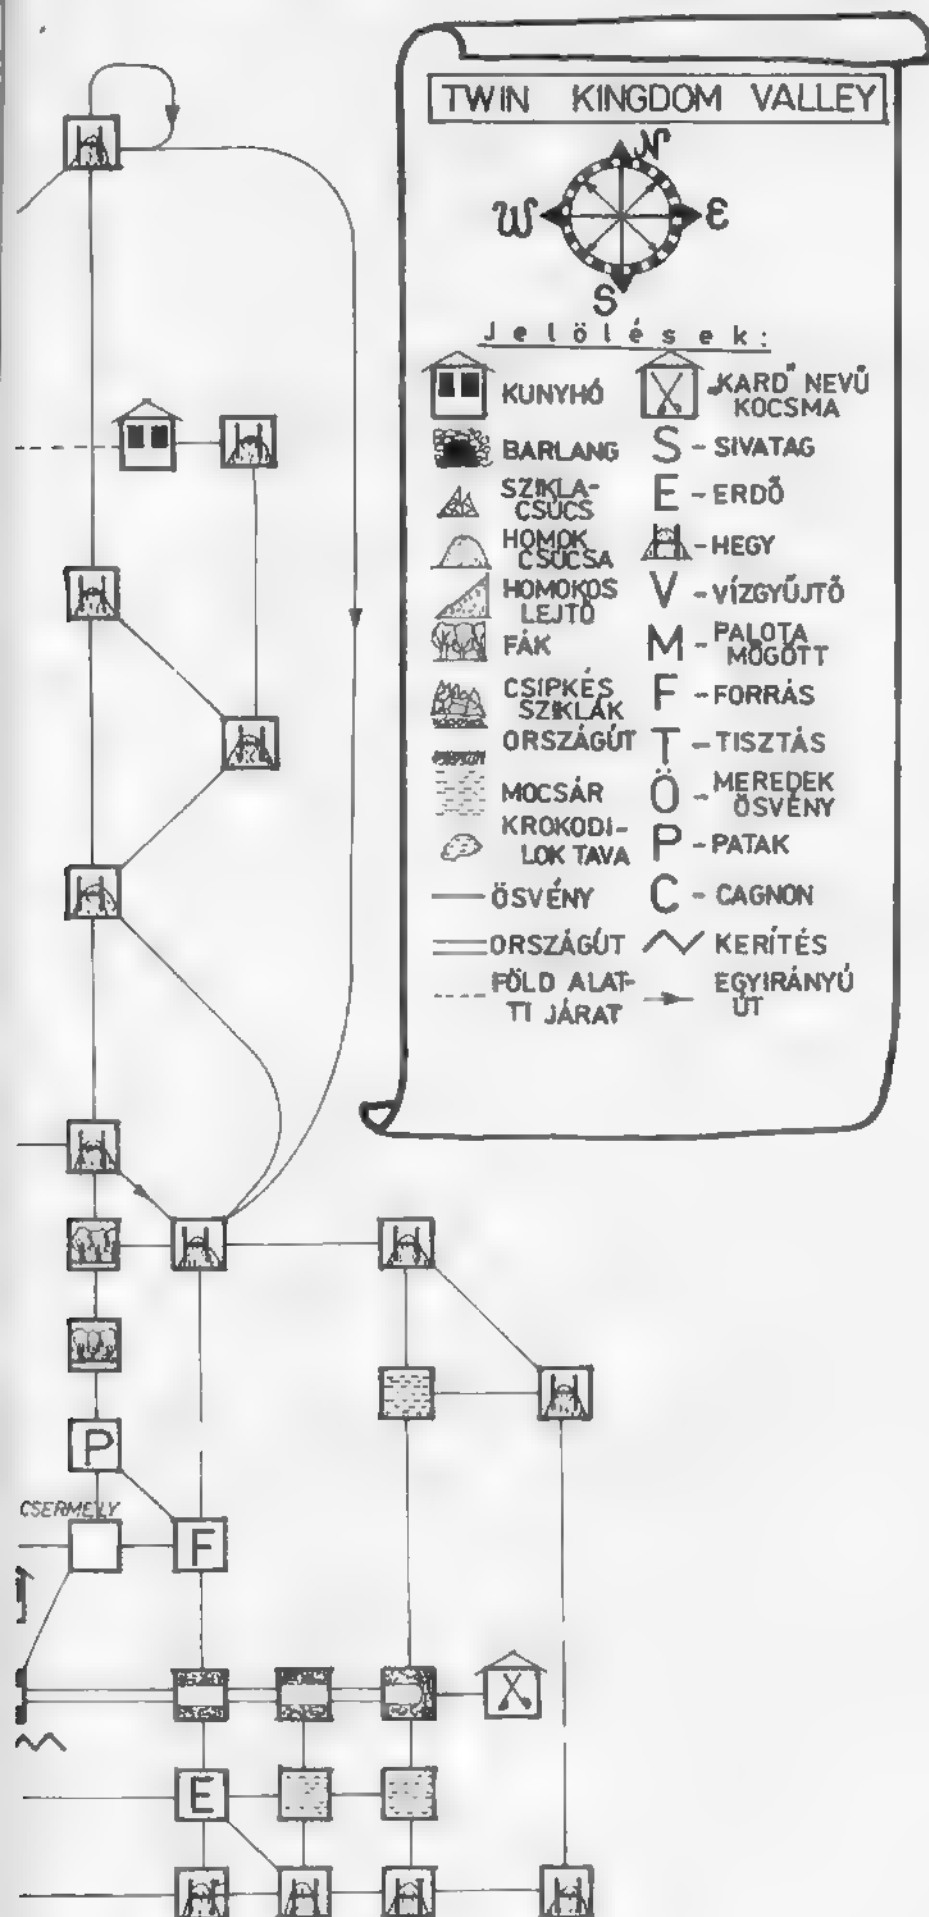 TWIN KINGDOM VALLEY
N
W E
S
Jelölések:
KUNYHÓ
BARLANG
SZIKLA-
CSÚCS
HOMOK
CSÚCSA
HOMOKOS
LEJTŐ
FÁK
CSIPKÉS
SZIKLÁK
ORSZÁGÚT
MOCSÁR
KROKODI-
LOK TAVA
ÖSVÉNY
ORSZÁGÚT
FÖLD ALAT-
TI JÁRAT
„KARD" NEVŰ
KOCSMA
S - SIVATAG
E - ERDŐ
H - HEGY
V - VÍZGYŰJTŐ
M - PALOTA
MÖGÖTT
F - FORRÁS
T - TISZTÁS
Ö - MEREDEK
ÖSVÉNY
P - PATAK
C - CAGNON
KERÍTÉS
EGYIRÁNYÚ
ÚT
H
H
H
H
H
H
H H
P
H
CSERMELY
F
E
H H H H